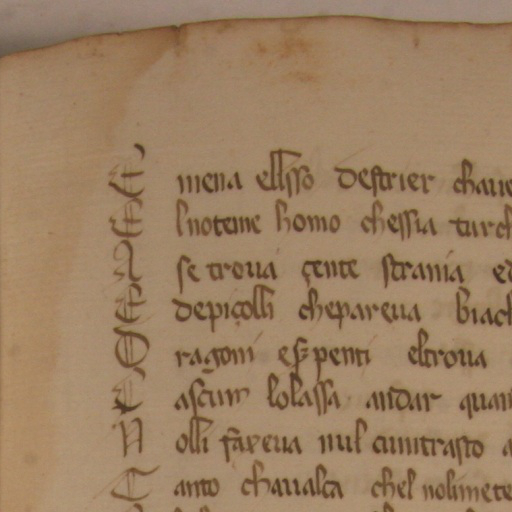 E mena ellisso destrier chaue
E lnoteme homo chessia turch
A se troua çente strania ed
E depiçolli chepareua biach
D ragoni esꝑpenti eltroua
C ascun lolassa andar quan
N olli faxeua nul cuntrasto a
T anto chaualca chel nolimete